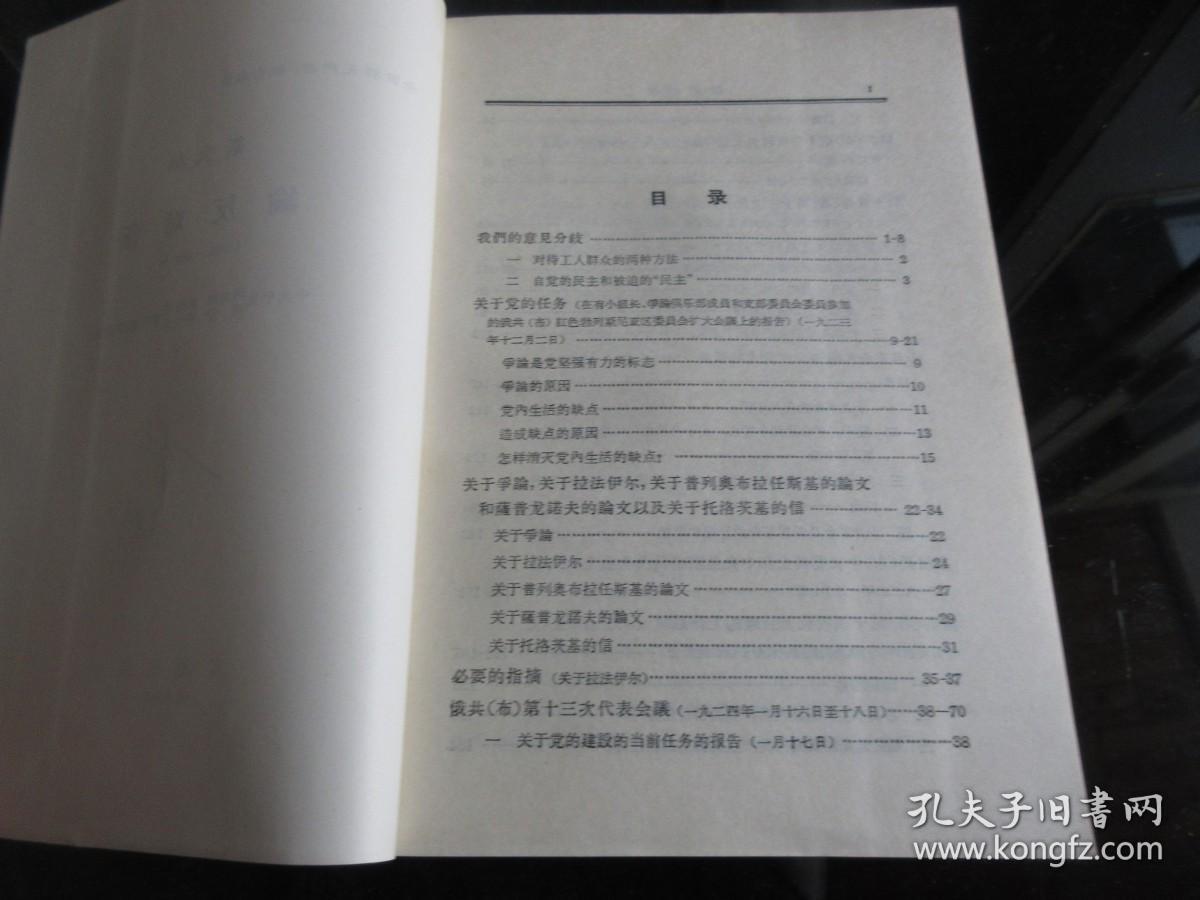 1
目 录
我們的意見分歧 1-8
一 对待工人群众的两种方法 2
二 自觉的民主和被迫的“民主” 3
关于党的任务 (在有小組长、爭論俱乐部成員和支部委員会委員参加
的俄共(布)紅色勃列斯尼亚区委員会扩大会議上的报告)(一九二三
年十二月二日) 9-21
爭論是党坚强有力的标志 9
爭論的原因 10
党內生活的缺点 11
造成缺点的原因 13
怎样消灭党內生活的缺点? 15
关于爭論,关于拉法伊尔,关于普列奥布拉任斯基的論文
和薩普龙諾夫的論文以及关于托洛茨基的信 22-34
关于爭論 22
关于拉法伊尔 24
关于普列奥布拉任斯基的論文 27
关于薩普龙諾夫的論文 29
关于托洛茨基的信 31
必要的指摘 (关于拉法伊尔) 35-37
俄共(布)第十三次代表会議 (一九二四年一月十六日至十八日) 38—70
一 关于党的建設的当前任务的报告 (一月十七日) 38
孔夫子旧書网
www.kongfz.com